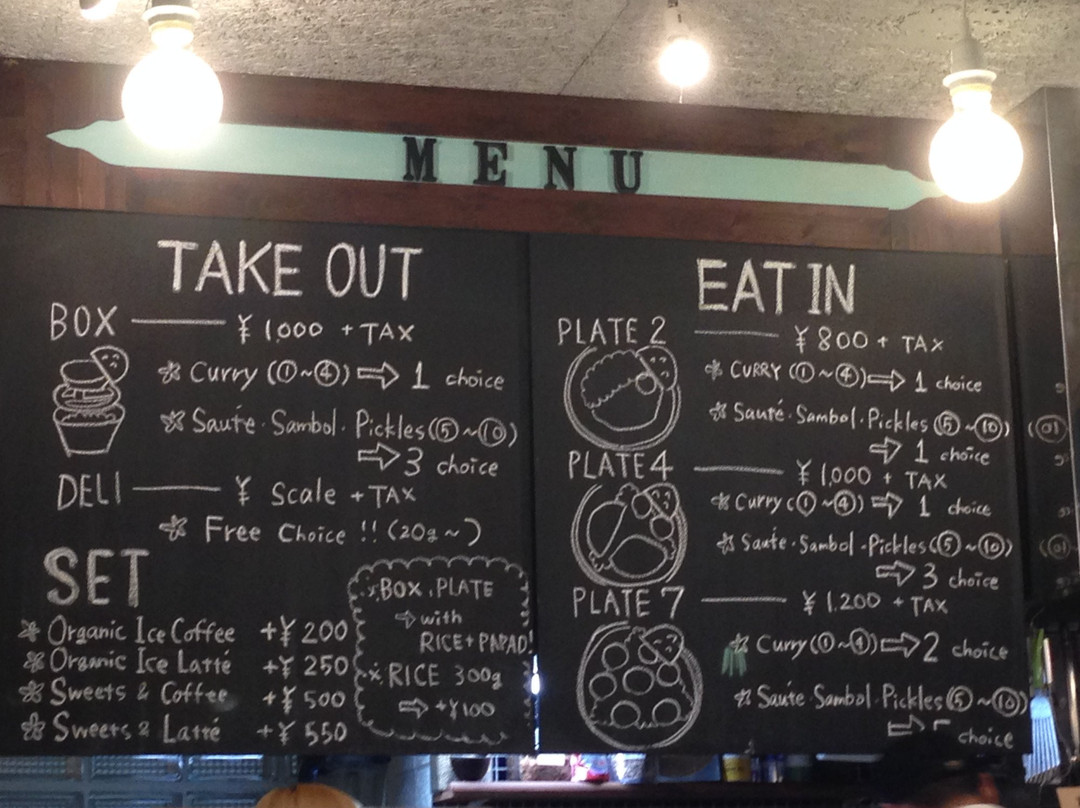 MENU
TAKE OUT
BOX —— ¥ 1,000 + TAX
Curry (①~④) ⇨ 1 choice
Sauté・Sambol・Pickles (⑤~⑩)
⇨ 3 choice
DELI —— ¥ Scale + TAX
Free Choice !! (20g~)
SET
Organic Ice Coffee +¥ 200
Organic Ice Latté +¥ 250
Sweets & Coffee +¥ 500
Sweets & Latté +¥ 550
※BOX, PLATE
⇨ with
RICE + PAPAD!
※ RICE 300g
⇨ +¥100
EAT IN
PLATE 2 —— ¥ 800 + TAX
CURRY (①~④) ⇨ 1 choice
Sauté・Sambol・Pickles (⑤~⑩)
⇨ 1 choice
PLATE 4 —— ¥ 1,000 + TAX
Curry (①~④) ⇨ 1 choice
Saute・Sambol・Pickles (⑤~⑩)
⇨ 3 choice
PLATE 7 —— ¥ 1,200 + TAX
Curry (①~④) ⇨ 2 choice
Saute・Sambol・Pickles (⑤~⑩)
⇨ choice